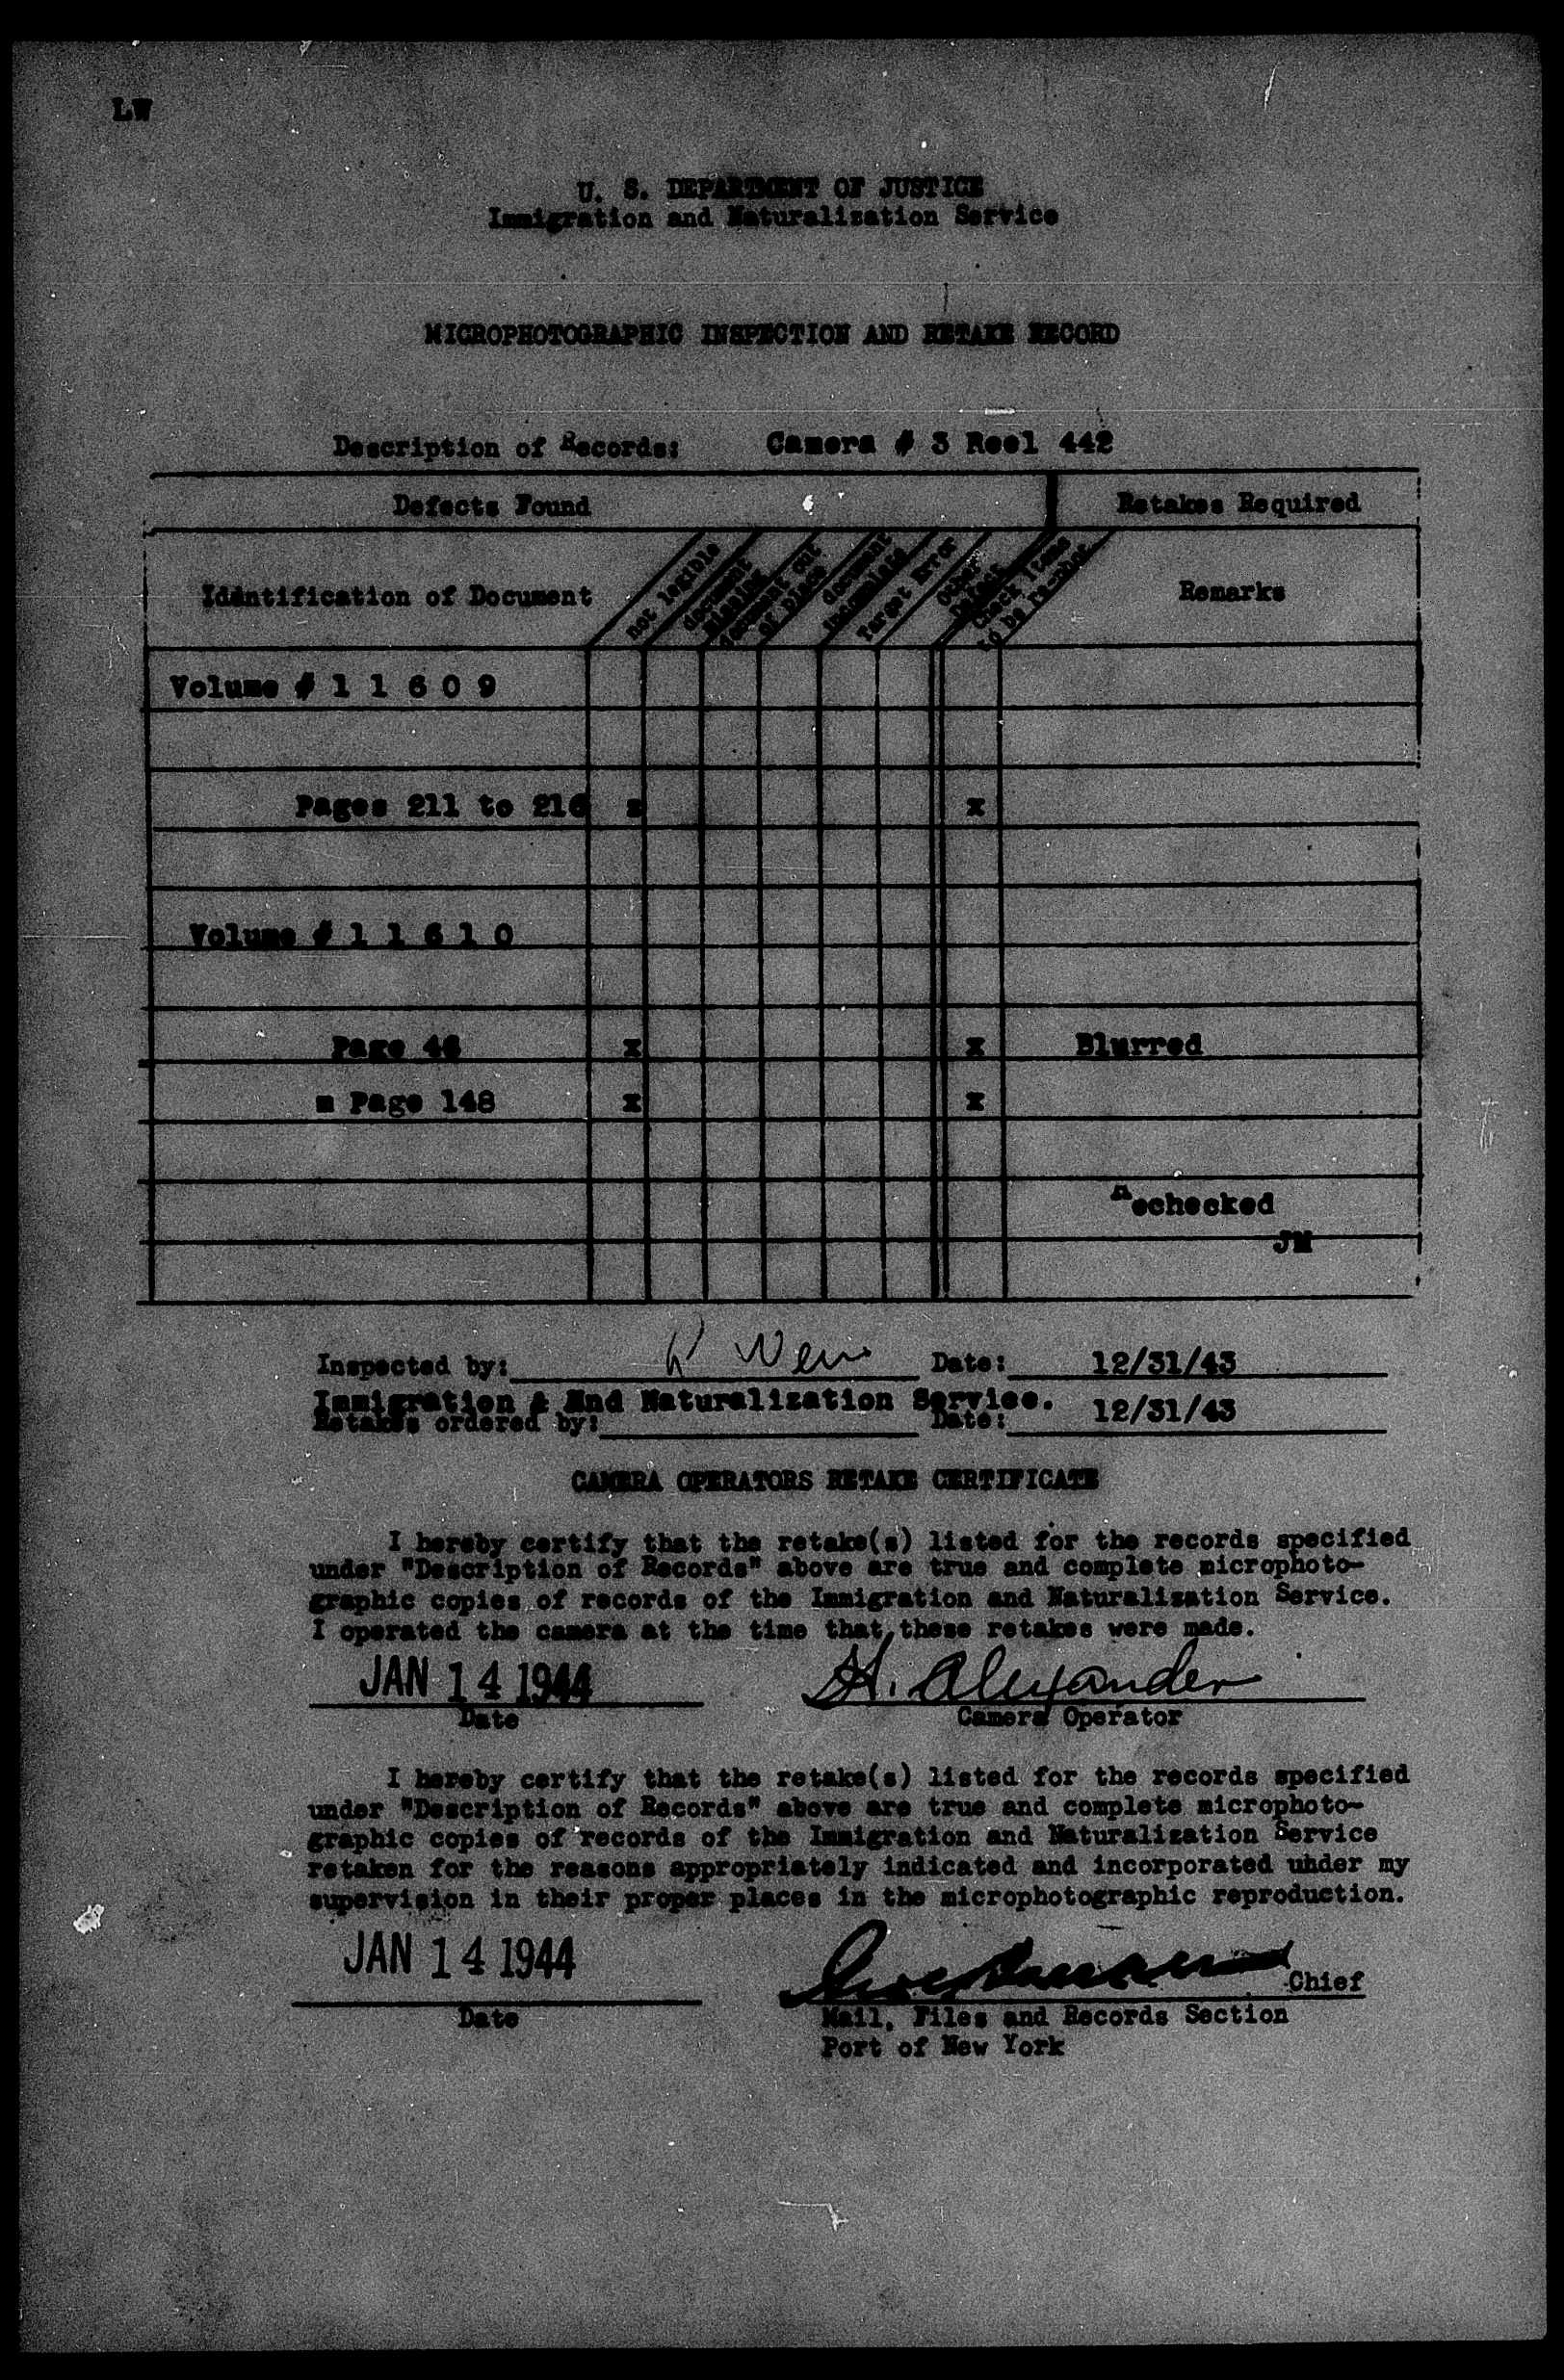 LW
U. S. DEPARTMENT OF JUSTICE
Immigration and Naturalization Service
MICROPHOTOGRAPHIC INSPECTION AND RETAKE RECORD
Description of Records: Camera # 3 Reel 442
Defects Found Retakes Required
Identification of Document not legible document missing document out of place document incomplete Target Error Other Defects Check Items to be rephot. Remarks
Volume # 1 1 6 0 9
Pages 211 to 216 x x
Volume # 1 1 6 1 0
Page 46 x x Blurred
Page 148 x x
Rechecked
JM
Inspected by: Date: 12/31/43
Immigration & And Naturalization Service.
Retakes ordered by: Date: 12/31/43
CAMERA OPERATORS RETAKE CERTIFICATE
I hereby certify that the retake(s) listed for the records specified
under "Description of Records" above are true and complete microphoto-
graphic copies of records of the Immigration and Naturalization Service.
I operated the camera at the time that these retakes were made.
JAN 14 1944 H. Alexander
Date Camera Operator
I hereby certify that the retake(s) listed for the records specified
under "Description of Records" above are true and complete microphoto-
graphic copies of records of the Immigration and Naturalization Service
retaken for the reasons appropriately indicated and incorporated under my
supervision in their proper places in the microphotographic reproduction.
JAN 14 1944 Chief
Date Mail, Files and Records Section
Port of New York